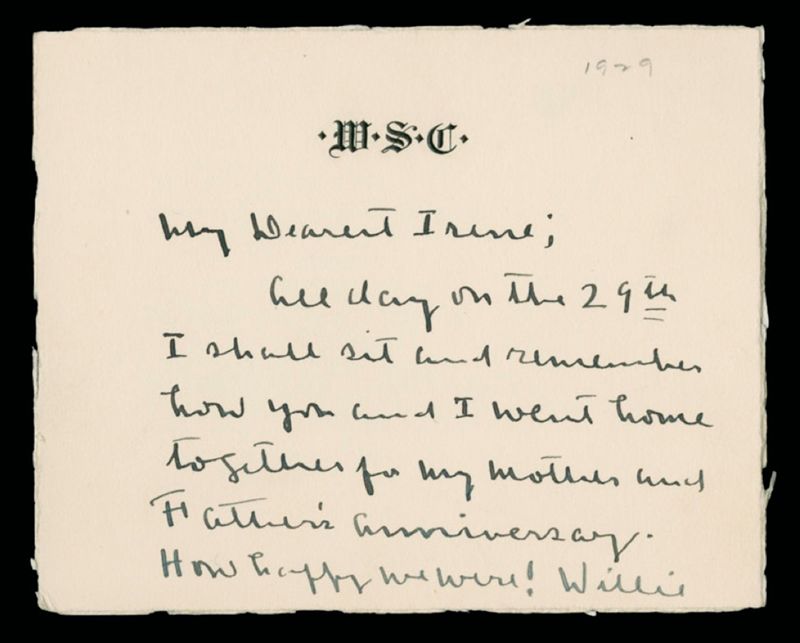 1929
·W·S·C·
My Dearest Irene;
All day on the 29th
I shall sit and remember
how you and I went home
together for my mother and
Father's anniversary.
How happy we were! Willie